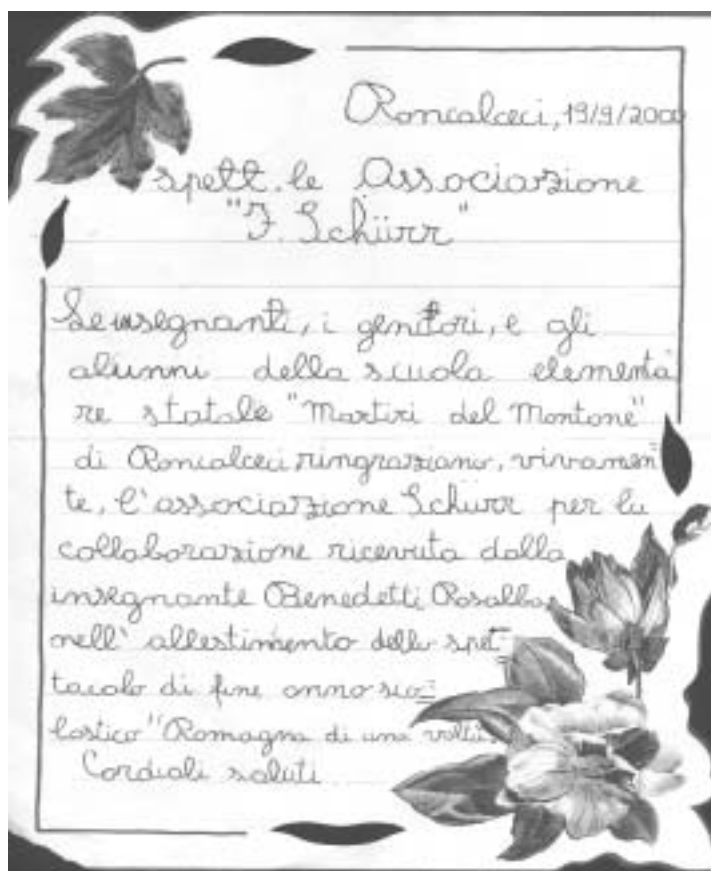 Roncalceci, 19/9/2000
spett.le Associazione
"F. Schürr"
Le insegnanti, i genitori, e gli
alunni della scuola elementa
re statale "Martiri del Montone"
di Roncalceci, ringraziano, vivamen=
te, l'associazione Schurr per la
collaborazione ricevuta dalla
insegnante Benedetti Rosalba
nell'allestimento dello spet=
tacolo di fine anno sco=
lastico "Romagna di una volta"
Cordiali saluti